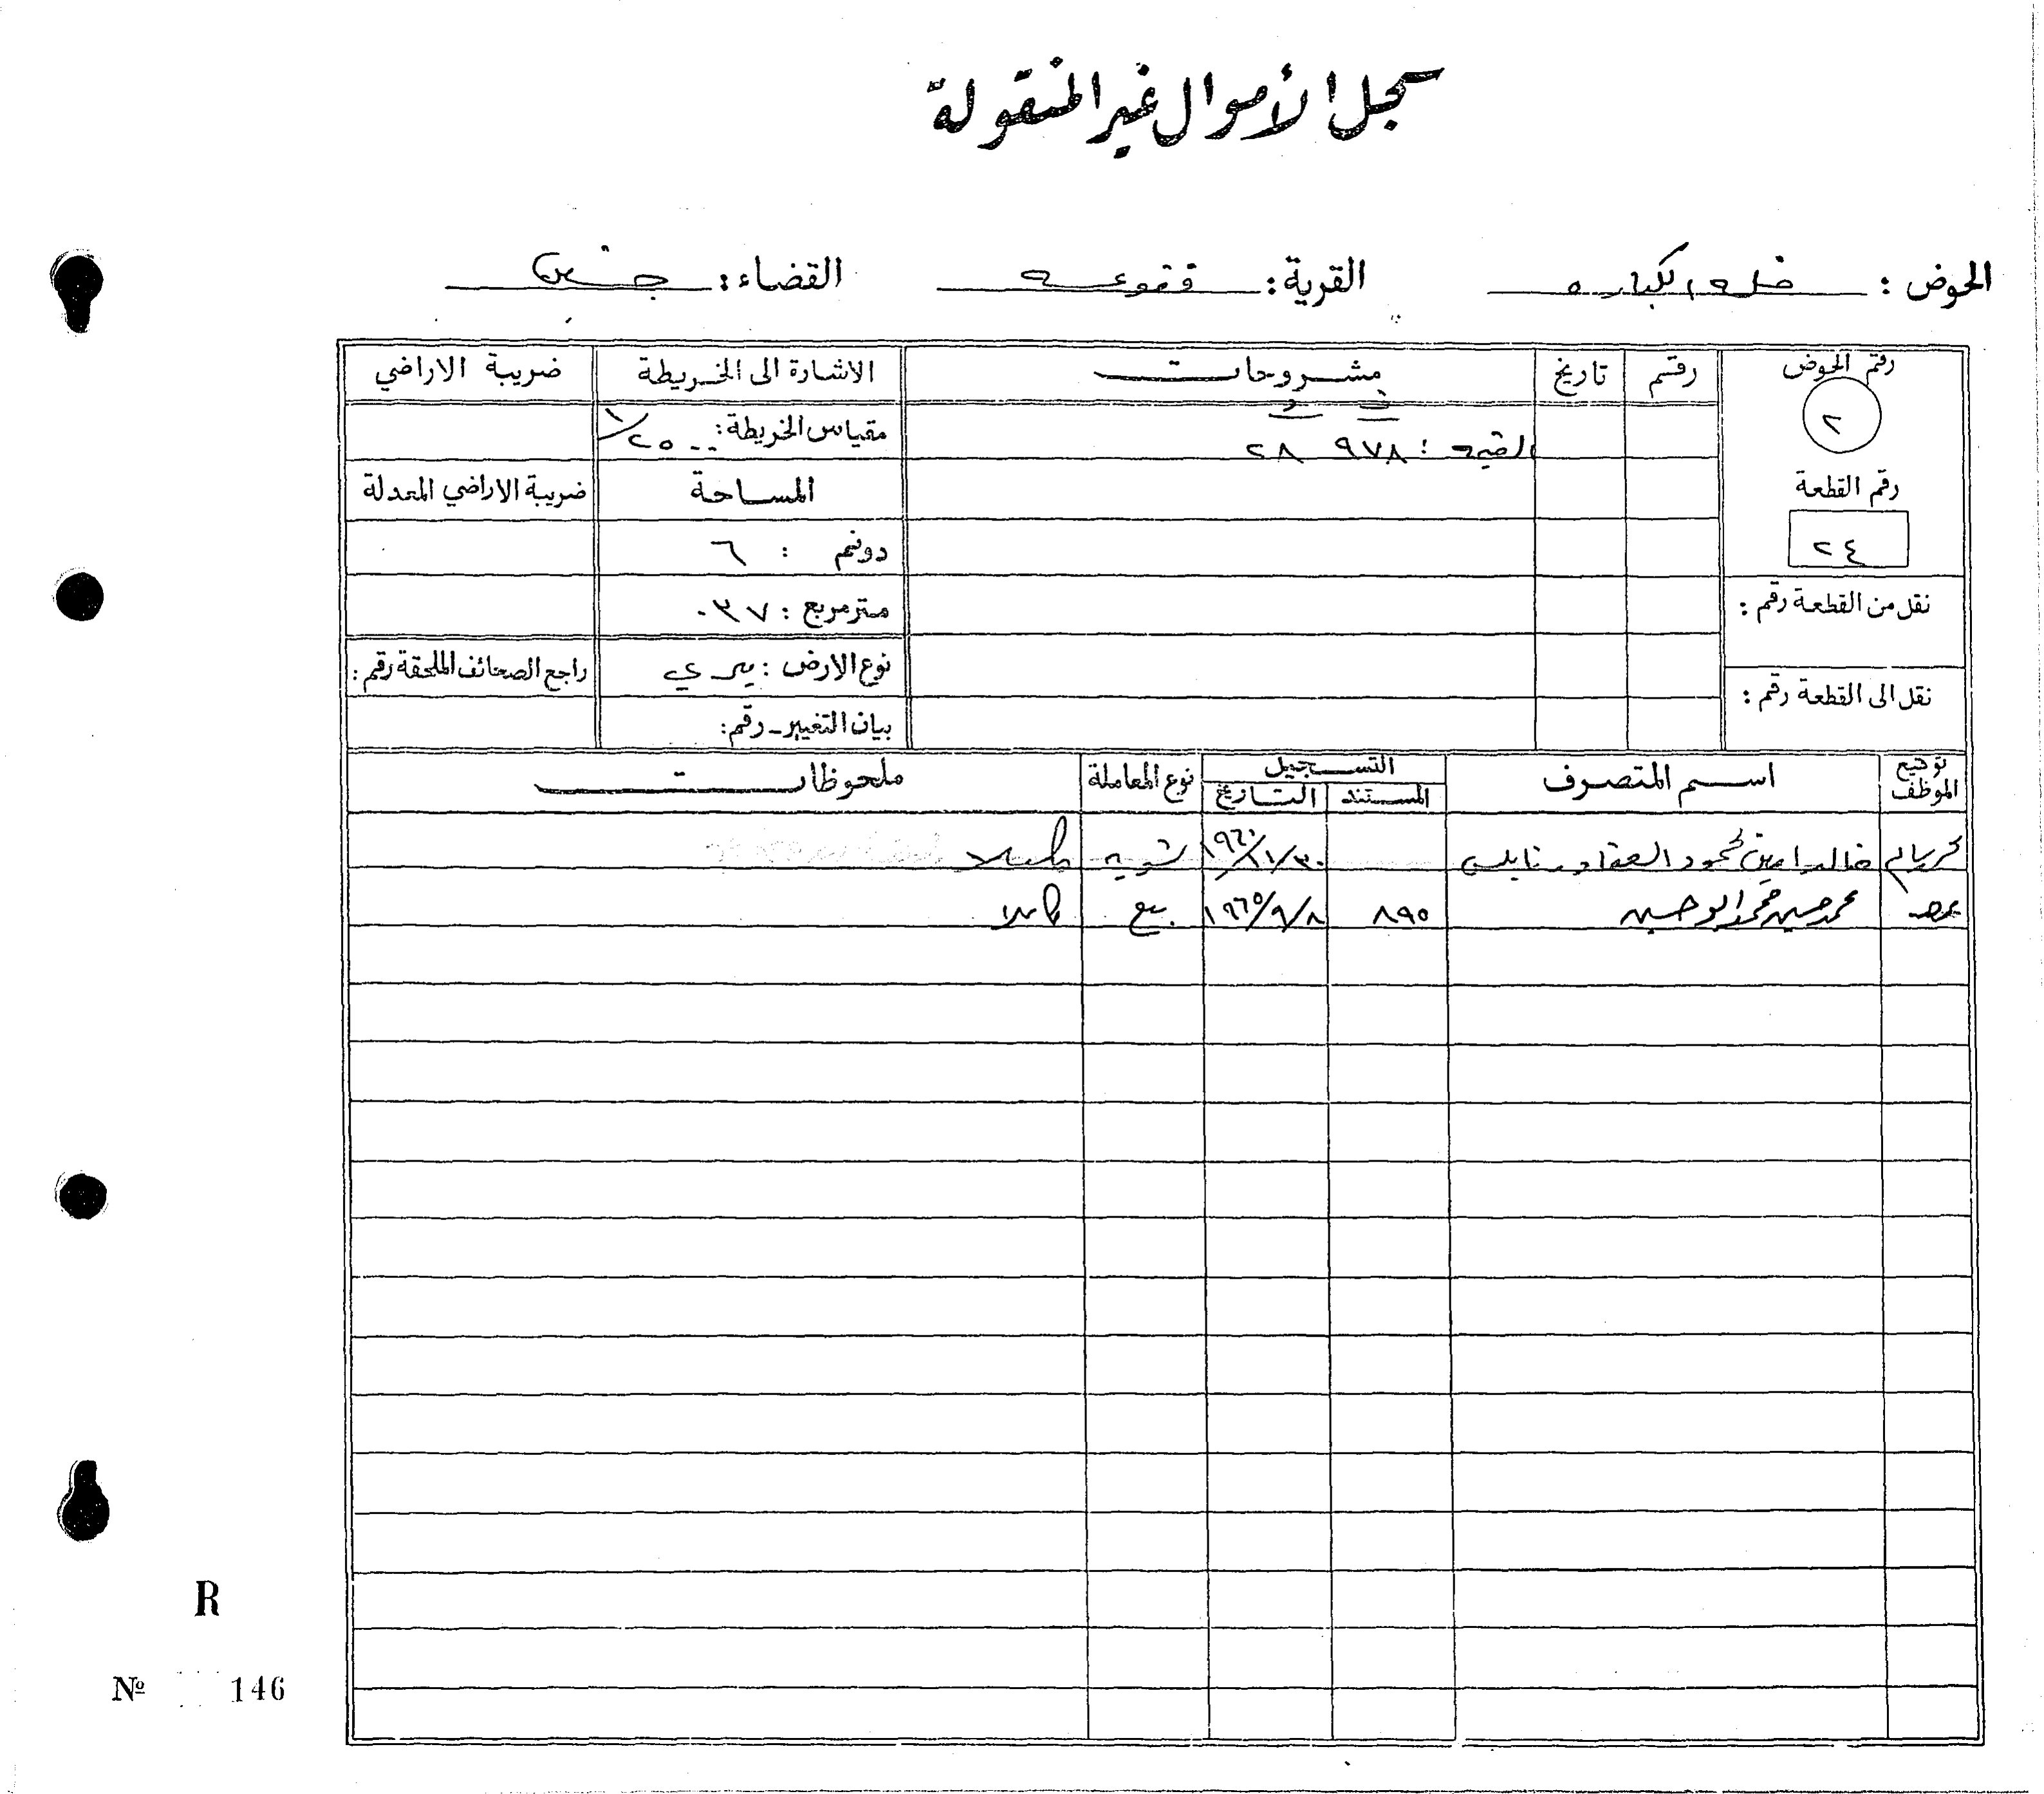 سجل الأموال غير المنقولة
الحوض : خلة الكباره القرية : فقوعه القضاء : جنين
رقم الحوض رقم تاريخ مشروحات الاشارة الى الخريطة ضريبة الاراضي
٢ ف و
القيد : ٩٧٨ ٢٨ مقياس الخريطة : ١/٢٥٠٠
رقم القطعة المساحة ضريبة الاراضي المعدلة
٢٤ دونم : ٦
نقل من القطعة رقم : مترمربع : ٠٣٧
نوع الارض : ميري راجع الصحائف الملحقة رقم :
نقل الى القطعة رقم :
بيان التغيير - رقم :
توقيع الموظف اسم المتصرف التسجيل نوع المعاملة ملحوظات
المستند التاريخ
خالد امين محمود العقاد نابلس ١٩٦٠/١١/٣٠ تسويه كاملا
محمد حسين محمد ابو حسين ٨٩٥ ١٩٦٥/٩/٨ بيع كاملا
R
Nº 146